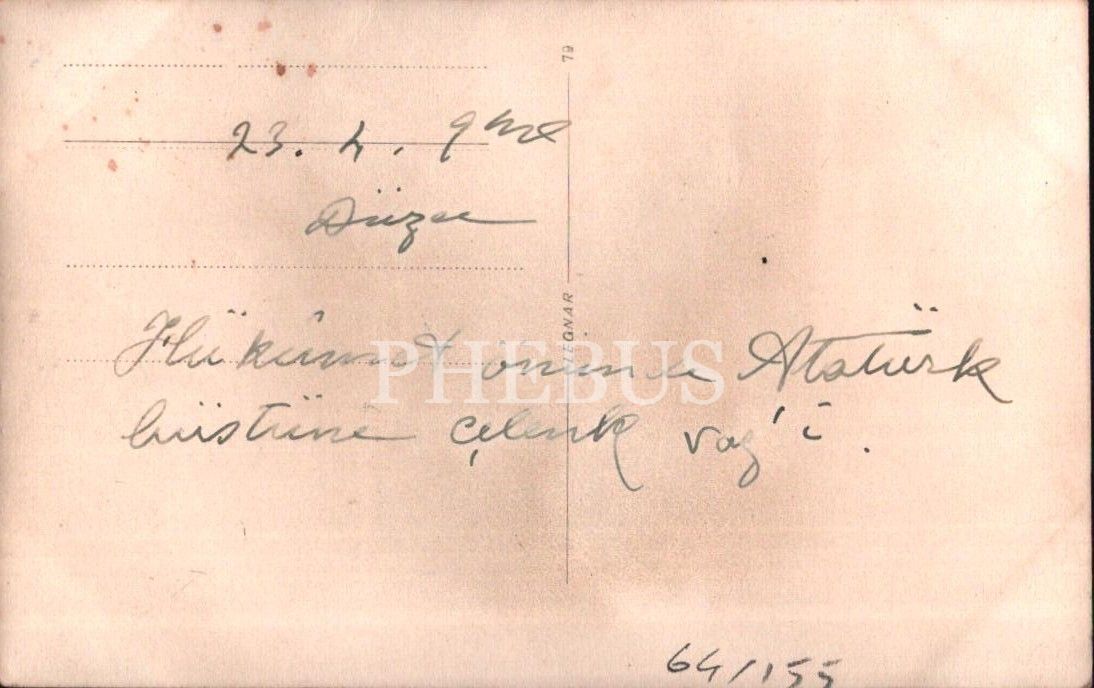 23. 4. 9
Düzce
Hükümet önünde Atatürk
büstüne çelenk vaz'ı.
64/155
79
LEONAR
PHEBUS